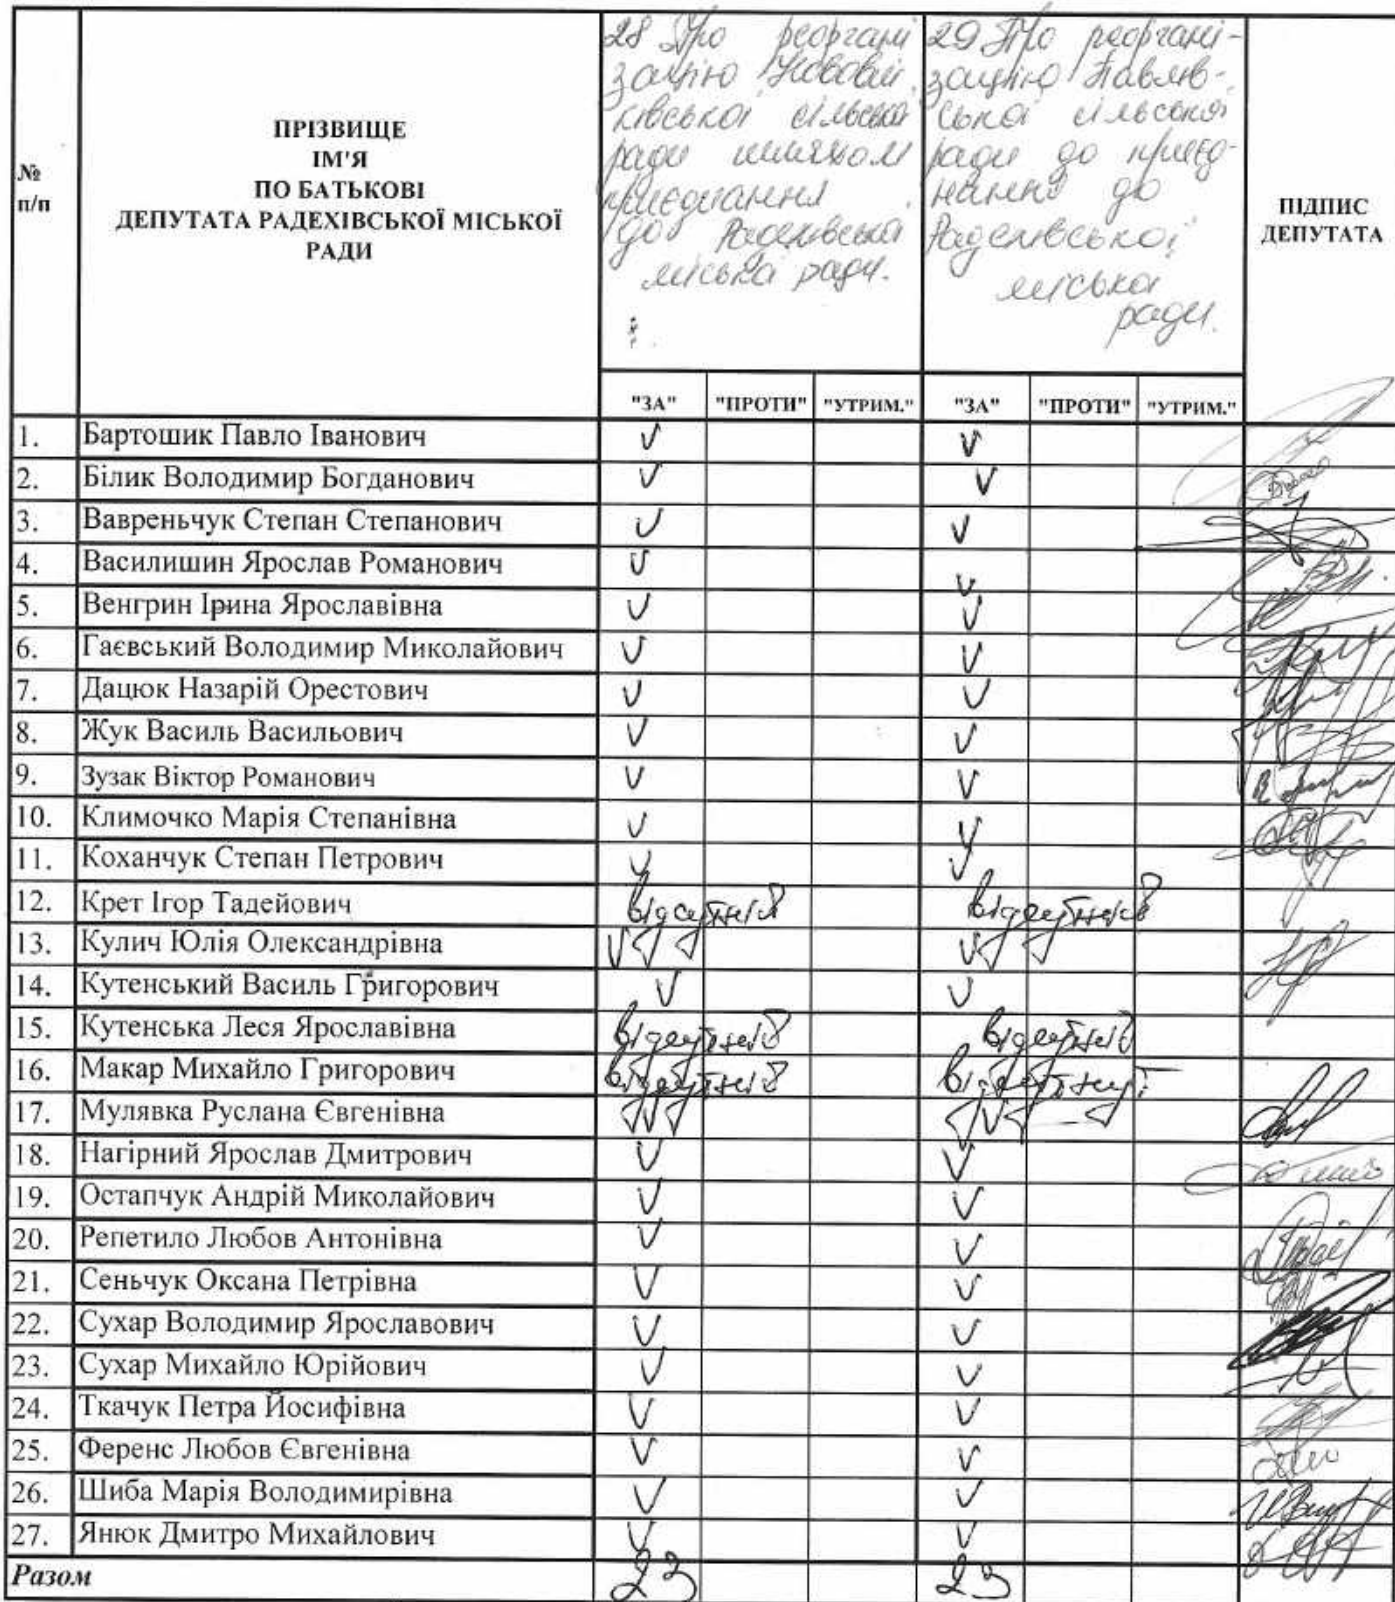 №
п/п
ПРІЗВИЩЕ
ІМ'Я
ПО БАТЬКОВІ
ДЕПУТАТА РАДЕХІВСЬКОЇ МІСЬКОЇ
РАДИ
28 Про реоргані
зацію
ківської сільської
ради шляхом
приєднання
до Радехівської
міської ради.
29 Про реоргані-
зацію Павлів-
ської сільської
ради до приєд-
нання до
Радехівської
міської
ради.
ПІДПИС
ДЕПУТАТА
"ЗА" "ПРОТИ" "УТРИМ." "ЗА" "ПРОТИ" "УТРИМ."
1. Бартошик Павло Іванович V V
2. Білик Володимир Богданович V V
3. Вавреньчук Степан Степанович V V
4. Василишин Ярослав Романович V V
5. Венгрин Ірина Ярославівна V V
6. Гаєвський Володимир Миколайович V V
7. Дацюк Назарій Орестович V V
8. Жук Василь Васильович V V
9. Зузак Віктор Романович V V
10. Климочко Марія Степанівна V V
11. Коханчук Степан Петрович V V
12. Крет Ігор Тадейович відсутній відсутній
13. Кулич Юлія Олександрівна V V
14. Кутенський Василь Григорович V V
15. Кутенська Леся Ярославівна відсутній відсутній
16. Макар Михайло Григорович відсутній відсутній
17. Мулявка Руслана Євгенівна V V
18. Нагірний Ярослав Дмитрович V V
19. Остапчук Андрій Миколайович V V
20. Репетило Любов Антонівна V V
21. Сеньчук Оксана Петрівна V V
22. Сухар Володимир Ярославович V V
23. Сухар Михайло Юрійович V V
24. Ткачук Петра Йосифівна V V
25. Ференс Любов Євгенівна V V
26. Шиба Марія Володимирівна V V
27. Янюк Дмитро Михайлович V V
Разом 23 23